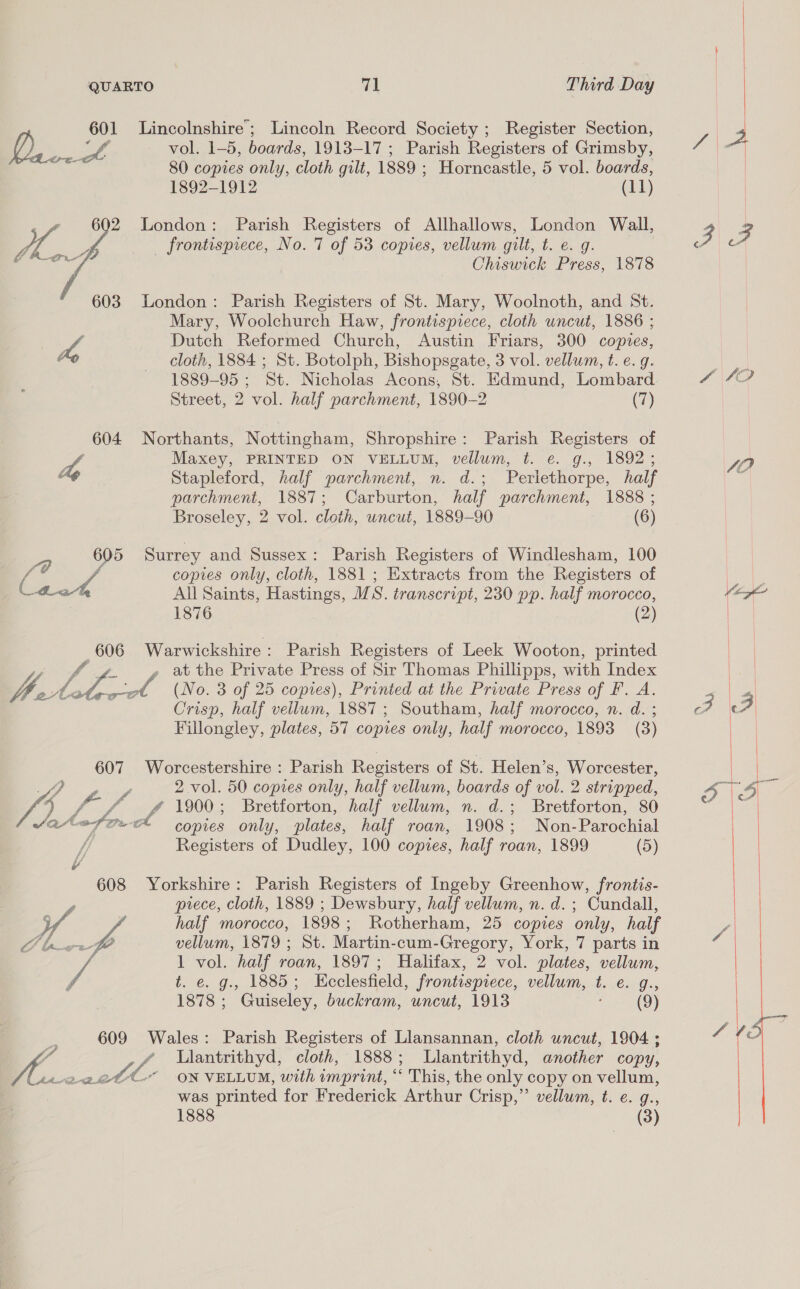 QUARTO 71 Third Day
601 Lincolnshire ; Lincoln Record Society ; Register Section,
vol. 1–5, boards, 1913–17 ; Parish Registers of Grimsby,
80 copies only, cloth gilt, 1889 ; Horncastle, 5 vol. boards,
1892–1912 (11)
602 London : Parish Registers of Allhallows, London Wall,
frontispiece, No. 7 of 53 copies, vellum gilt, t. e. g.
Chiswick Press, 1878
3 3
603 London : Parish Registers of St. Mary, Woolnoth, and St.
Mary, Woolchurch Haw, frontispiece, cloth uncut, 1886 ;
Dutch Reformed Church, Austin Friars, 300 copies,
do cloth, 1884 ; St. Botolph, Bishopsgate, 3 vol. vellum, t. e. g.
1889–95 ; St. Nicholas Acons, St. Edmund, Lombard
Street, 2 vol. half parchment, 1890–2 (7)
1 10
604 Northants, Nottingham, Shropshire : Parish Registers of
Maxey, PRINTED ON VELLUM, vellum, t. e. g., 1892 ;
do Stapleford, half parchment, n. d. ; Perlethorpe, half
10
parchment, 1887 ; Carburton, half parchment, 1888 ;
Broseley, 2 vol. cloth, uncut, 1889–90 (6)
605 Surrey and Sussex : Parish Registers of Windlesham, 100
copies only, cloth, 1881 ; Extracts from the Registers of
All Saints, Hastings, MS. transcript, 230 pp. half morocco,
1876 (2)
606 Warwickshire : Parish Registers of Leek Wooton, printed
at the Private Press of Sir Thomas Phillipps, with Index
(No. 3 of 25 copies), Printed at the Private Press of F. A.
Crisp, half vellum, 1887 ; Southam, half morocco, n. d. ;
3 3
Fillongley, plates, 57 copies only, half morocco, 1893 (3)
607 Worcestershire : Parish Registers of St. Helen's, Worcester,
2 vol. 50 copies only, half vellum, boards of vol. 2 stripped,
5 5
1900 ; Bretforton, half vellum, n. d. ; Bretforton, 80
copies only, plates, half roan, 1908 ; Non-Parochial
Registers of Dudley, 100 copies, half roan, 1899 (5)
608 Yorkshire : Parish Registers of Ingeby Greenhow, frontis-
piece, cloth, 1889 ; Dewsbury, half vellum, n. d. ; Cundall,
half morocco, 1898 ; Rotherham, 25 copies only, half
vellum, 1879 ; St. Martin-cum-Gregory, York, 7 parts in
1 vol. half roan, 1897 ; Halifax, 2 vol. plates, vellum,
t. e. g., 1885 ; Ecclesfield, frontispiece, vellum, t. e. g.,
1878 ; Guiseley, buckram, uncut, 1913 (9)
609 Wales : Parish Registers of Llansannan, cloth uncut, 1904 ;
1 15
Llantrithyd, cloth, 1888 ; Llantrithyd, another copy,
ON VELLUM, with imprint, “ This, the only copy on vellum,
was printed for Frederick Arthur Crisp,” vellum, t. e. g.,
1888 (3)